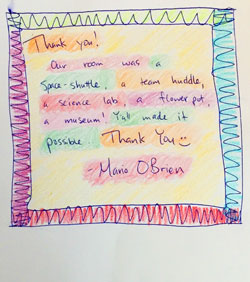 Thank you!
Our room was a
Space-shuttle, a team huddle,
a science lab, a flower pot,
a museum! Y'all made it
possible. Thank You
- Mario O'Brien